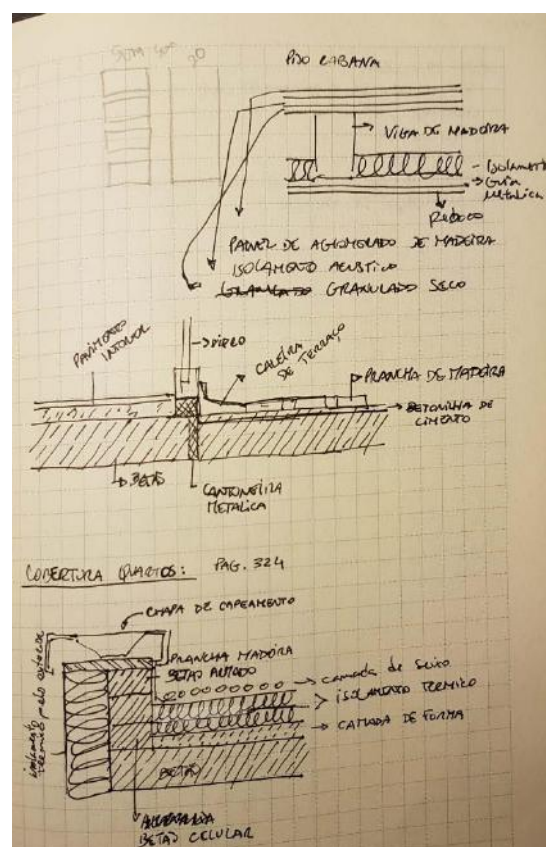 PISO CABANA
VIGA DE MADEIRA
Isolamento
Guia
Metalica
Reboco
PAINEL DE AGLOMERADO DE MADEIRA
ISOLAMENTO ACUSTICO
GRANULADO SECO
PAVIMENTO
INTERIOR
VIDRO
CALEIRA
DE TERRAÇO
PRANCHA DE MADEIRA
BETONILHA DE
CIMENTO
BETÃO
CANTONEIRA
METALICA
COBERTURA QUARTOS: PAG. 324
CHAPA DE CAPEAMENTO
PRANCHA MADEIRA
BETÃO ARMADO
camada de seixo
ISOLAMENTO TERMICO
CAMADA DE FORMA
isolamento
termico pelo exterior
BETÃO
BETÃO CELULAR